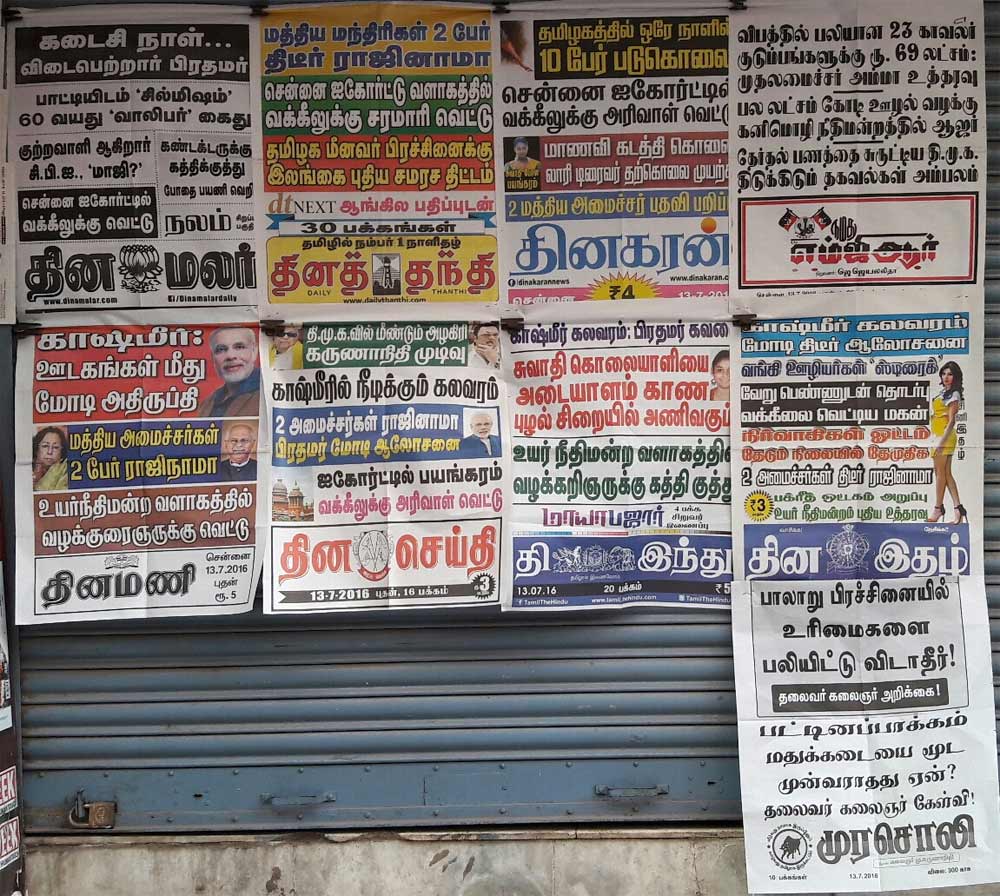 கடைசி நாள்...
விடைபெற்றார் பிரதமர்
பாட்டியிடம் 'சில்மிஷம்'
60 வயது 'வாலிபர்' கைது
குற்றவாளி ஆகிறார்
சி.பி.ஐ., 'மாஜி?'
சென்னை ஐகோர்ட்டில்
வக்கீலுக்கு வெட்டு
கண்டக்டருக்கு
கத்திக்குத்து
போதை பயணி வெறி
நலம்
தின மலர்
www.dinamalar.com
/Dinamalardaily
மத்திய மந்திரிகள் 2 பேர்
திடீர் ராஜினாமா
சென்னை ஐகோர்ட்டு வளாகத்தில்
வக்கீலுக்கு சரமாரி வெட்டு
தமிழக மீனவர் பிரச்சினைக்கு
இலங்கை புதிய சமரச திட்டம்
dt NEXT ஆங்கில பதிப்புடன்
30 பக்கங்கள்
தமிழில் நம்பர் 1 நாளிதழ்
தினத் தந்தி
DAILY THANTHI
www.dailythanthi.com
தமிழகத்தில் ஒரே நாளில்
10 பேர் படுகொலை
சென்னை ஐகோர்ட்டில்
வக்கீலுக்கு அரிவாள் வெட்டு
மாணவி கடத்தி கொலை
லாரி டிரைவர் தற்கொலை முயற்சி
2 மத்திய அமைச்சர் பதவி பறிப்
தினகரன்
/dinakarannews
www.dinakaran.
சென்னை
₹4
13.7.2016
விபத்தில் பலியான 23 காவலர்
குடும்பங்களுக்கு ரூ. 69 லட்சம்:
முதலமைச்சர் அம்மா உத்தரவு
பல லட்சம் கோடி ஊழல் வழக்கு
கனிமொழி நீதிமன்றத்தில் ஆஜர்
தேர்தல் பணத்தை சுருட்டிய தி.மு.க.
திடுக்கிடும் தகவல்கள் அம்பலம்
நமது
எம்ஜிஆர்
ஜெ ஜெயலலிதா
காஷ்மீர்:
ஊடகங்கள் மீது
மோடி அதிருப்தி
மத்திய அமைச்சர்கள்
2 பேர் ராஜிநாமா
உயர்நீதிமன்ற வளாகத்தில்
வழக்குரைஞருக்கு வெட்டு
தினமணி
சென்னை
13.7.2016
புதன்
ரூ. 5
தி.மு.க.வில் மீண்டும் அழகிரி
கருணாநிதி முடிவு
காஷ்மீரில் நீடிக்கும் கலவரம்
2 அமைச்சர்கள் ராஜினாமா
பிரதமர் மோடி ஆலோசனை
ஐகோர்ட்டில் பயங்கரம்
வக்கீலுக்கு அரிவாள் வெட்டு
தின செய்தி
13-7-2016 புதன், 16 பக்கம்
₹3
காஷ்மீர் கலவரம்: பிரதமர் கவலை
சுவாதி கொலையாளியை
அடையாளம் காண
புழல் சிறையில் அணிவகுப்
உயர் நீதிமன்ற வளாகத்தில்
வழக்கறிஞருக்கு கத்தி குத்து
மாயாபஜார்
4 பக்க
சிறுவர்
இணைப்பு
தி இந்து
13.07.16
20 பக்கம்
₹5
TamilTheHindu
www.tamilthehindu.com
TamilTheHindu
காஷ்மீர் கலவரம்
மோடி திடீர் ஆலோசனை
வங்கி ஊழியர்கள் 'ஸ்டிரைக்'
வேறு பெண்ணுடன் தொடர்பு
வக்கீலை வெட்டிய மகன்
நிர்வாகிகள் ஓட்டம்
தேடும் நிலையில் தேமுதிக
2 அமைச்சர்கள் திடீர் ராஜினாமா
₹3
பக்ரீத் ஒட்டகம் அறுப்பு
உயர் நீதிமன்றம் புதிய உத்தரவு
தின இதழ்
பாலாறு பிரச்சினையில்
உரிமைகளை
பலியிட்டு விடாதீர்!
தலைவர் கலைஞர் அறிக்கை!
பட்டினப்பாக்கம்
மதுக்கடையை மூட
முன்வராதது ஏன்?
தலைவர் கலைஞர் கேள்வி!
முரசொலி
10 பக்கங்கள்
13.7.2016
விலை: 300 காசு